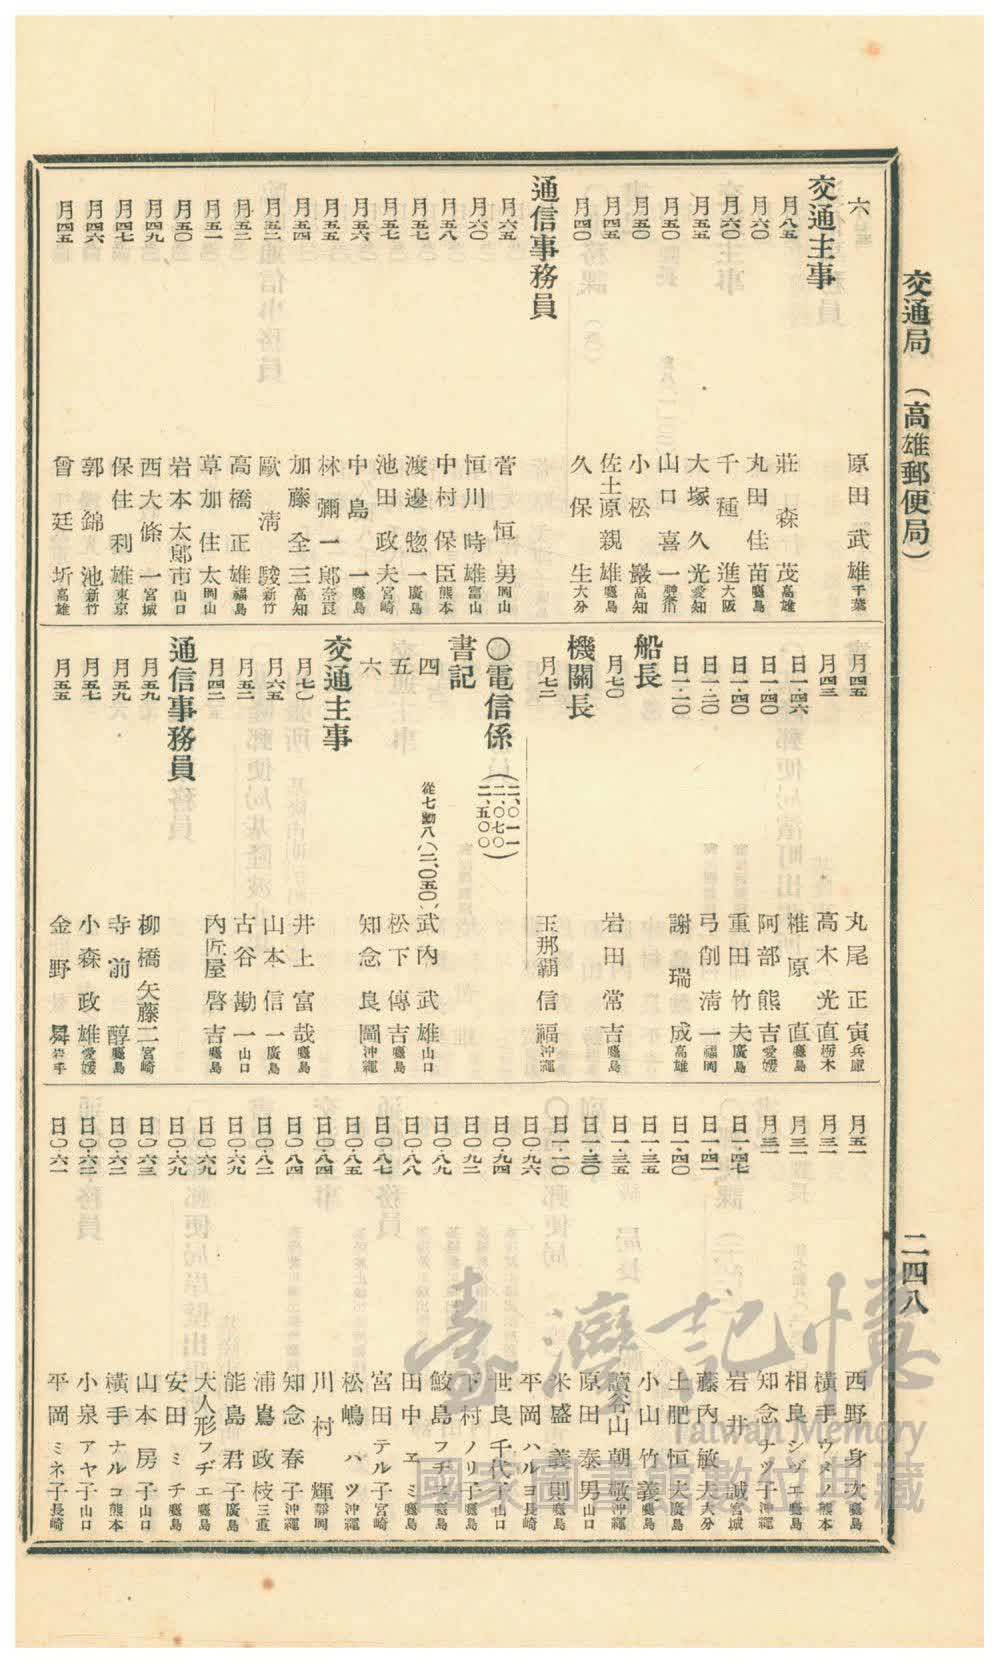 交通局 (高雄郵便局)
二四八
六 原田武雄 千葉
交通主事
月八五 莊森茂 高雄
月六〇 丸田佳苗 鹿兒島
月六〇 千種進 大阪
月五五 大塚久光 愛知
月五〇 山口喜一 神奈川
月五〇 小松巖 高知
月四五 佐土原親雄 鹿兒島
月四〇 久保生 大分
通信事務員
月六五 菅恒男 岡山
月六〇 恒川時雄 富山
月五八 中村保臣 熊本
月五七 渡邊惣一 廣島
月五七 池田政夫 宮崎
月五六 中島一 鹿兒島
月五五 林彌一郎 奈良
月五四 加藤全三 高知
月五二 歐清駿 新竹
月五二 高橋正雄 福島
月五一 草加住太 岡山
月五〇 岩本太郎市 山口
月四九 西大條一 宮城
月四七 保住利雄 東京
月四六 郭錦池 新竹
月四五 曾廷圻 高雄
月四五 丸尾正寅 兵庫
月四三 高木光直 栃木
日一・四六 椎原直 鹿兒島
日一・四〇 阿部熊吉 愛媛
日一・四〇 重田竹夫 廣島
日一・二〇 弓削清一 福岡
日一・二〇 謝瑞成 高雄
船長
月七〇 岩田常吉 鹿兒島
機關長
月七二 玉那覇信福 沖繩
〇電信係 (二、〇一一 二、〇七〇 二、五〇〇)
書記
四 從七勳八(二、〇五〇) 武內武雄 山口
五 松下傳吉 鹿兒島
六 知念良岡 沖繩
交通主事
月七〇 井上富哉 鹿兒島
月六五 山本信一 廣島
月五二 古谷勘一 山口
月四二 內匠屋啓吉 鹿兒島
通信事務員
月五九 柳橋矢藤二 宮崎
月五九 寺前醇 鹿兒島
月五七 小森政雄 愛媛
月五五 金野曻 岩手
月五一 西野身次 鹿兒島
月三一 橫手ウメノ 熊本
月三一 相良シヅエ 鹿兒島
月三一 知念ナツ子 沖繩
日一・四七 岩井誠 宮城
日一・四一 藤內敏夫 大分
日一・四〇 土肥恒夫 廣島
日一・三五 小山竹義 鹿兒島
日一・三五 讀谷山朝敬 沖繩
日一・三〇 原田泰男 山口
日一・一〇 米盛義則 鹿兒島
日〇・九六 平岡ハルヨ 長崎
日〇・九四 世良千代子 山口
日〇・九二 下村ノリ子 鹿兒島
日〇・八九 鮫島フヂマ 鹿兒島
日〇・八八 田中エミ 鹿兒島
日〇・八七 宮田テル子 宮崎
日〇・八五 松嶋ハツ 沖繩
日〇・八四 川村輝 靜岡
日〇・八四 知念春子 沖繩
日〇・八二 浦嶌政枝 三重
日〇・六九 能島君子 廣島
日〇・六九 大人形フヂエ 鹿兒島
日〇・六九 安田ミチ 鹿兒島
日〇・六三 山本房子 山口
日〇・六二 橫手ナルコ 熊本
日〇・六二 小泉アヤ子 山口
日〇・六一 平岡ミネ子 長崎
臺灣記憶
Taiwan Memory
國家圖書館數位典藏